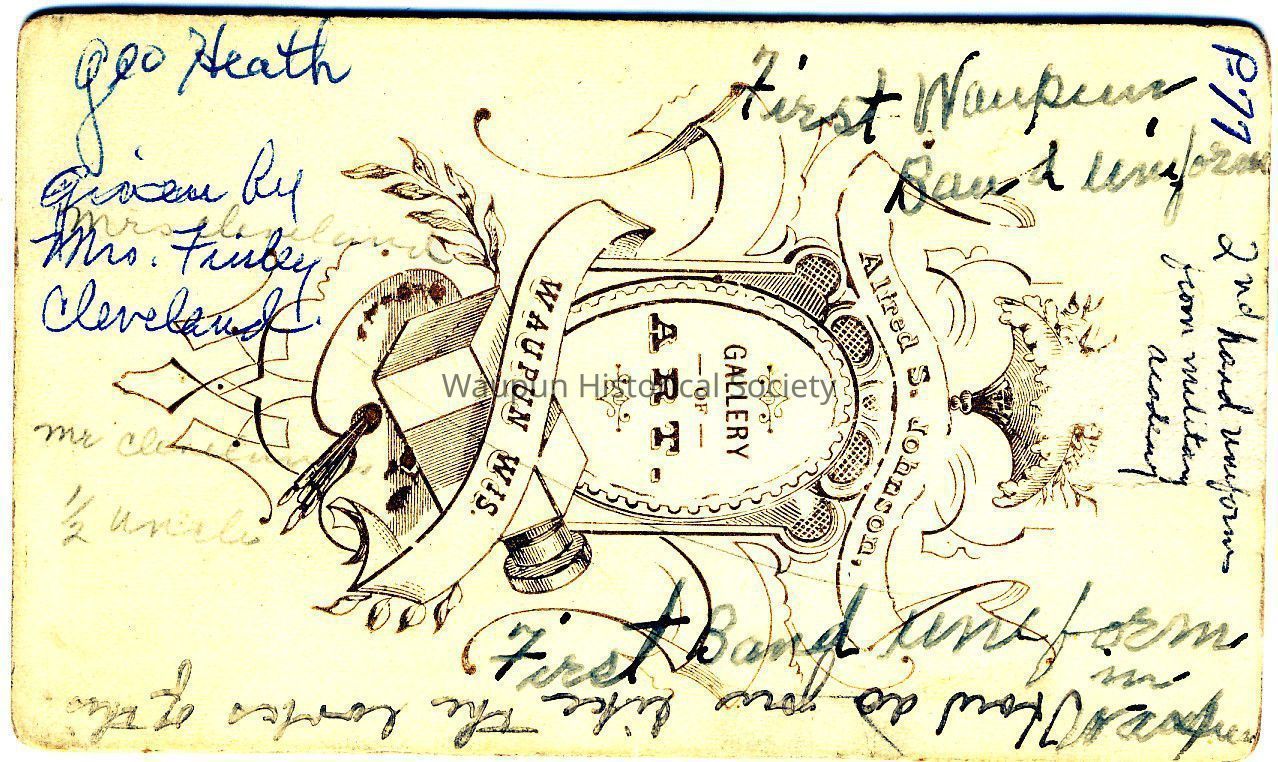 Geo Heath
given by
Mrs Cleveland
Mrs. Finley
Cleveland.
Mr Cleveland's
1/2 uncle
First Waupun
Band uniform
P77
2nd hand uniform
from military
academy
Alfred S. Johnson,
GALLERY
OF
ART.
WAUPUN WIS.
Waupun Historical Society
First Band uniform
in
Waupun
How do you like the looks of this